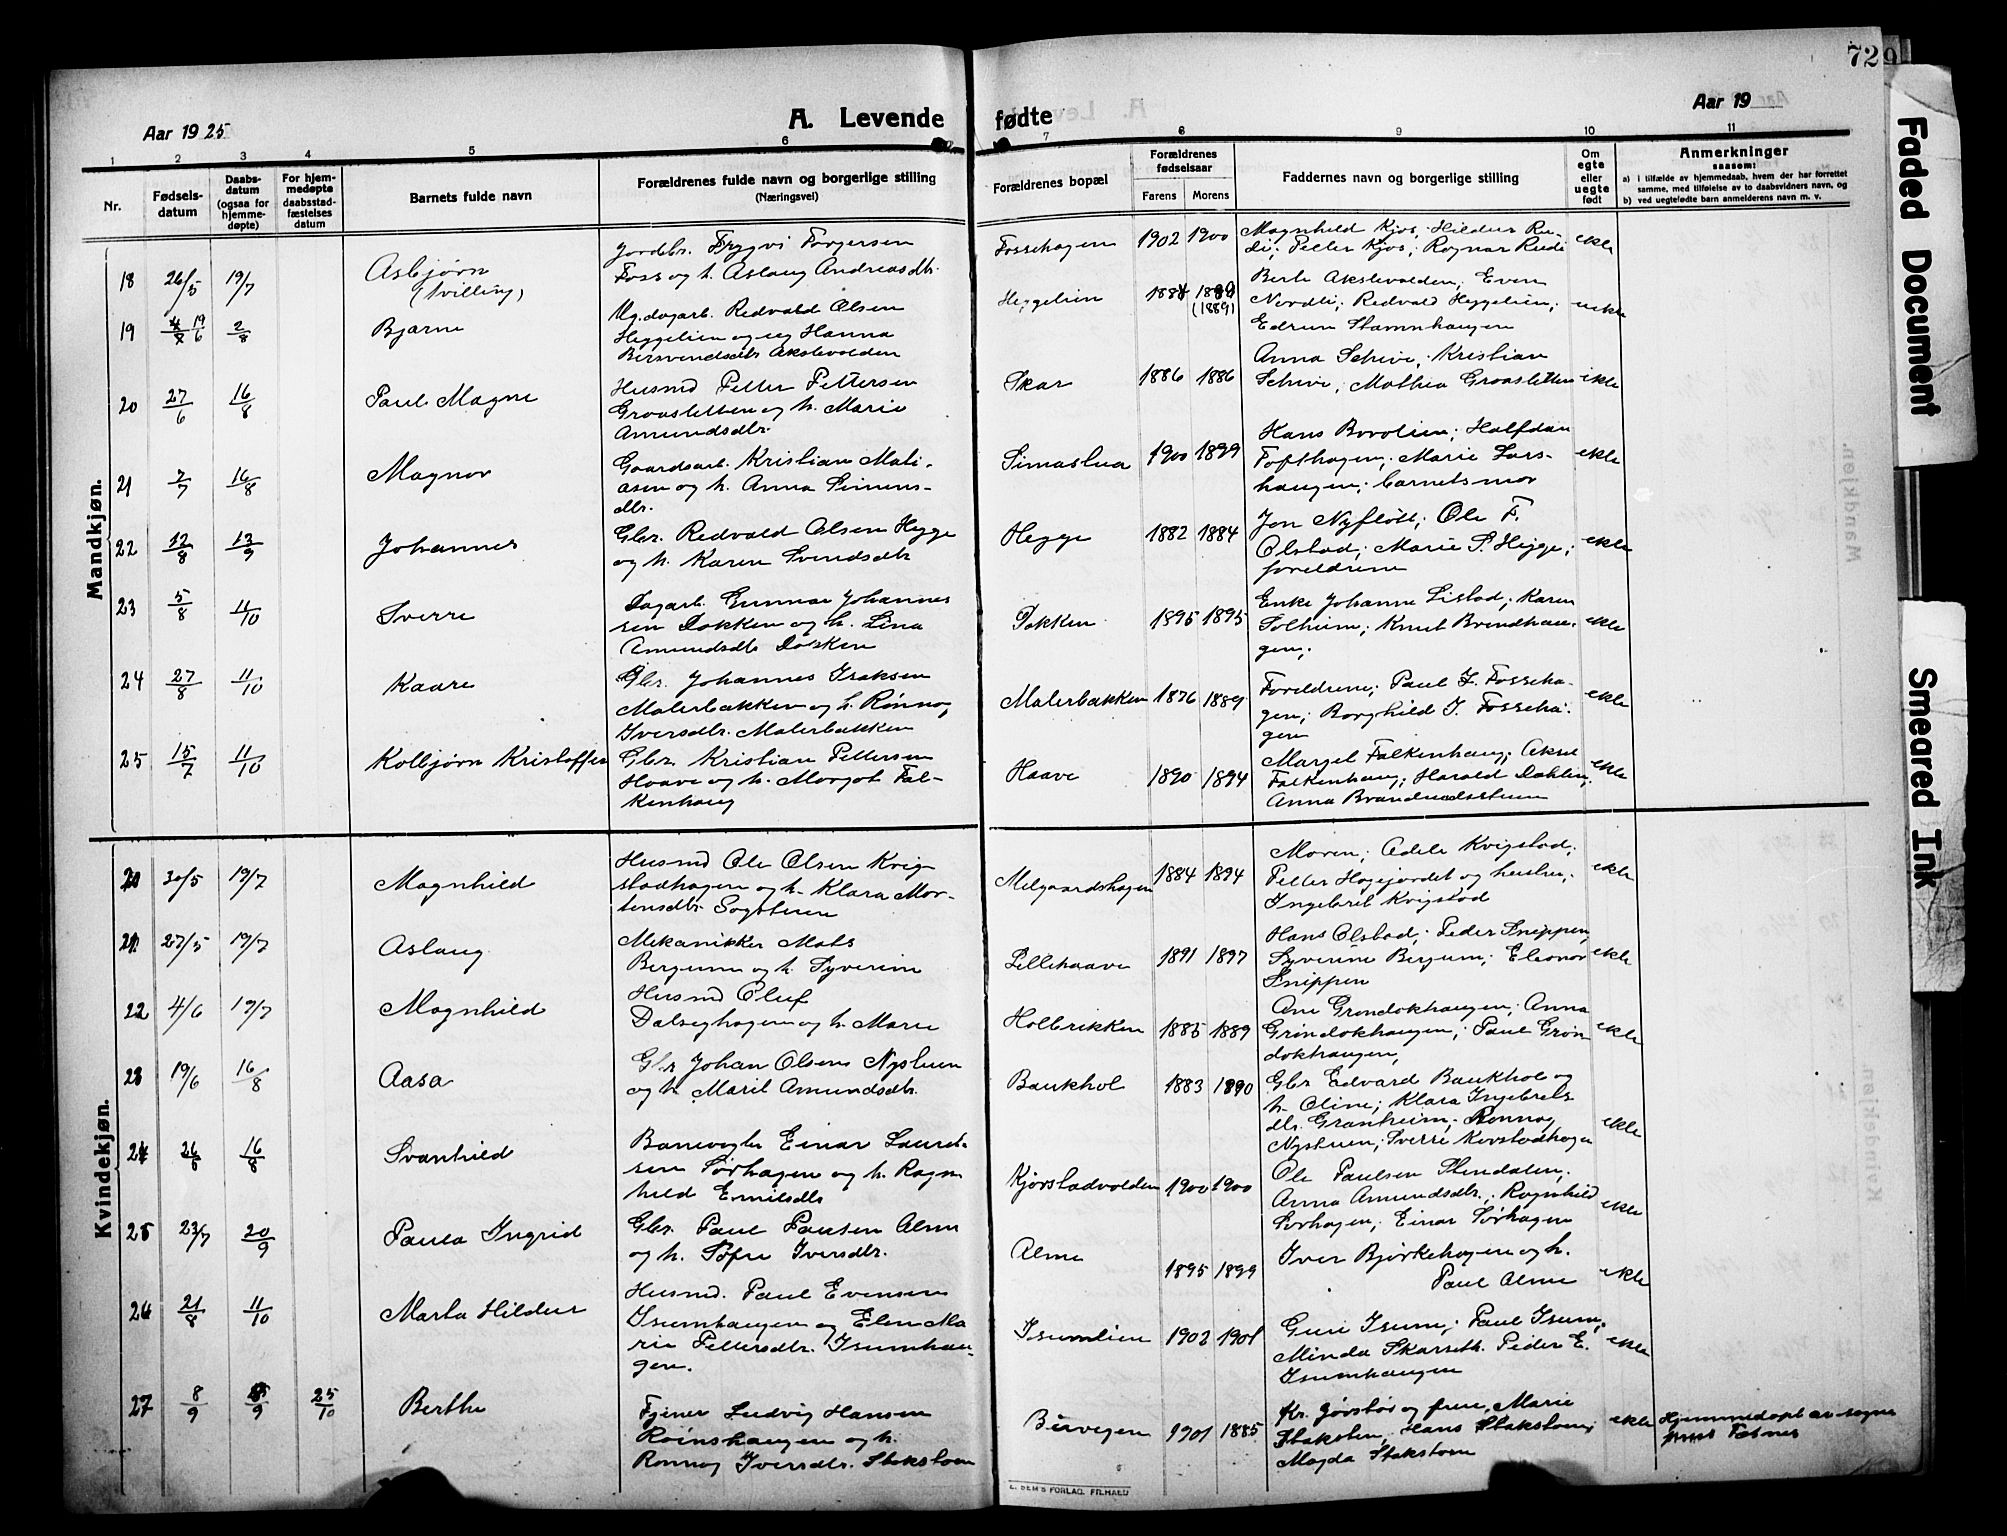 729
Aar 1925
A. Levende
fødte
Aar 19
1 2 3 4 5 6 7 8 9 10 11
Nr.
Fødsels-
datum
Daabs-
datum
(ogsaa for
hjemme-
døpte)
For hjem-
medøpte
daabsstad-
fæstelses
datum
Barnets fulde navn
Forældrenes fulde navn og borgerlige stilling
(Næringsvei)
Forældrenes bopæl
Forældrenes
fødselsaar
Farens Morens
Faddernes navn og borgerlige stilling
Om
egte
eller
uegte
født
Anmerkninger
saasom:
a) i tilfælde av hjemmedaab, hvem der har forrettet
samme, med tilføielse av to daabsvidners navn, og
b) ved uegtefødte barn anmelderens navn m. v.
Mandkjøn.
18 26/5 19/7 Asbjørn
(tvilling)
Jordbr. Trygvi Torgersen
Foss og h. Aslaug Andreasdtr.
Fossehagen 1902 1900
Magnhild Kjos; Hildur Ru-
di; Petter Kjos; Ragnar Rudi
ekte
19 19/6 2/8 Bjarne
Ug. dagarb. Redvald Olsen
Heggelien og ug Hanna
Bersvendsdtr Akslevolden
Heggelien 1884 1889
(1889)
Berte Akslevolden; Even
Nordli; Redvald Heggelien;
Edrun Stamnhaugen
uekte
20 27/6 16/8 Paul Magne
Husmd Petter Pettersen
Graasletten og h. Marie
Amundsdtr.
Skar 1886 1886
Anna Schive; Kristian
Schive; Mathea Graasletten
ekte
21 2/7 16/8 Magnor
Gaardsarb. Kristian Mati-
asen og h. Anna Simens-
dtr.
Simastua 1900 1899
Hans Borolien; Halfdan
Tofthagen; Marie Lars-
haugen; barnets mor
ekte
22 12/8 13/9 Johannes
Gbr. Redvald Olsen Hegge
og h. Karen Svendsdtr
Hegge 1882 1884
Jon Nyfløtt; Ole F.
Olstad; Marie S. Hegge;
foreldrene
ekte
23 5/8 11/10 Sverre
Dagarb. Gunnar Johannes
sen Dokken og h. Lina
Amundsdtr Dokken
Dokken 1895 1895
Enke Johanne Listad; Karen
Solheim; Knut Brendhau-
gen;
ekte
24 27/8 11/10 Kaare
Gbr. Johannes Isaksen
Malerbakken og h. Rønnog
Iversdtr. Malerbakken
Malerbakken 1876 1889
Foreldrene; Paul I. Fosseha-
gen; Borghild I. Fosseha-
gen
ekte
25 15/7 11/10 Kolbjørn Kristoffer
Gbr. Kristian Pettersen
Haave og h. Margot Fal-
kenhaug
Haave 1890 1894
Margel Falkenhaug; Aksel
Falkenhaug; Harald Dahlin;
Anna Brandvadsstuen
ekte
Kvindekjøn.
20 30/5 19/7 Magnhild
Husmd Ole Olsen Kvig-
stadhagen og h. Klara Mor-
tensdtr Sogstuen
Melgaardshagen 1884 1894
Moren; Adele Kvigstad;
Petter Hagejordet og hustru;
Ingebret Kvigstad
ekte
21 27/5 19/7 Aslaug
Mekanikker Mats
Bergum og h. Syverine
Lillehaave 1891 1897
Hans Olstad; Peder Snippen;
Syverine Bergum; Eleonor
Snippen
ekte
22 4/6 19/7 Magnhild
Husmd Oluf
Dalseghagen og h. Marie
Holbrikken 1885 1889
Ane Grøndokhaugen; Anna
Grøndokhaugen; Paul Grøn
dokhaugen;
ekte
23 19/6 16/8 Aasa
Gbr Johan Olsen Nystuen
og h. Marit Amundsdtr.
Baukhol 1883 1890
Gbr Edvard Baukhol og
h. Oline; Klara Ingebrets
dtr. Granheim; Rønnog
Nystuen; Sverre Kovstadhagen
ekte
24 16/8 Svanhild
Banevogter Einar Laurit-
sen Sørhagen og h. Ragn
hild Emilsdtr
Kjørstadvolden 1900 1900
Ole Paulsen Stendalen;
Anna Amundsdtr.; Ragnhild
Sørhagen; Einar Sørhagen
ekte
25 23/7 20/9 Paula Ingrid
Gbr. Paul Paulsen Alme
og h. Sofie Iversdtr.
Alme
1895 1899
Iver Bjørkehagen og h.
Paul Alme
ekte
26 21/8 11/10 Marta Hildur
Husmd. Paul Evensen
Isumhaugen og Elen Ma
rie Pettersdtr. Isumhau-
gen.
Isumlien 1902 1901
Guri Isum; Paul Isum;
Minda Skarseth. Peder E.
Isumhaugen
ekte
27 8/9 25/10 Berthe
Fjener Ludvig Hansen
Roinshaugen og h.
Rønnog Iversdtr. Stakstoen
Burvegen 1901 1885
Kr. Jørstad og frue, Marie
Stakston; Hans Stakstoen;
Magda Stakstoen
ekte
Hjemmedøpt av sogne
prest Fetner
E. SEM'S FORLAG. FR.HALD
Faded Document
Smeared Ink